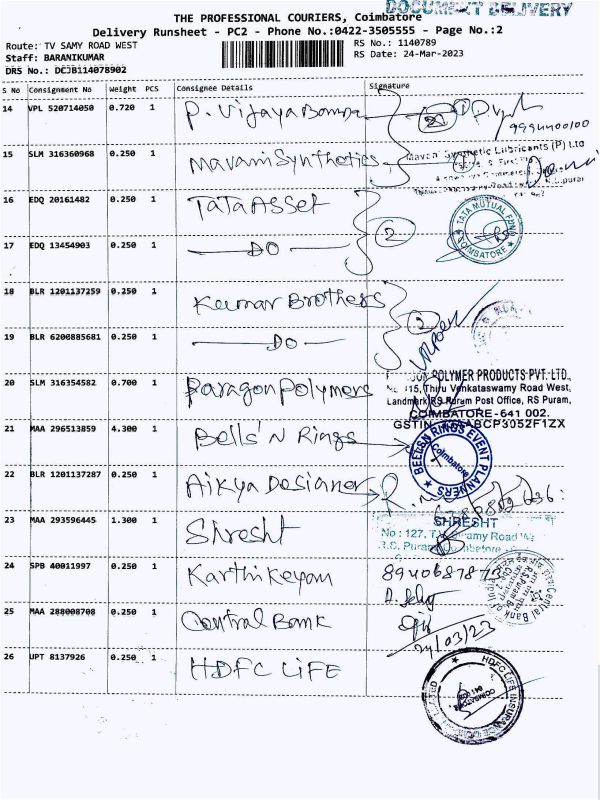 THE PROFESSIONAL COURIERS, Coimbatore
DOCUMENT DELIVERY
Delivery Runsheet - PC2 - Phone No.:0422-3505555 - Page No.:2
Route: TV SAMY ROAD WEST
RS No.: 1140789
Staff: BARANIKUMAR
RS Date: 24-Mar-2023
DRS No.: DCJB114078902
S No Consignment No Weight PCS Consignee Details Signature
14 VPL 520714050 0.720 1 P. Vijaya
15 SLM 316360968 0.250 1 Mavani Synthetics
16 EDQ 20161482 0.250 1 TATA Asset 2 TATA MUTUAL FUND COIMBATORE
17 EDQ 13454903 0.250 1 DO
18 BLR 1201137259 0.250 1 Kumar Brothers 2
19 BLR 6200885681 0.250 1 DO
20 SLM 316354582 0.700 1 Paragon Polymers
POLYMER PRODUCTS PVT. LTD.,
No. 115, Thiru Venkataswamy Road West,
Landmark RS Puram Post Office, RS Puram,
COIMBATORE-641 002.
21 MAA 296513859 4.300 1 Bells 'N Rings
BELLS N RINGS EVENT PLANNERS Coimbatore
22 BLR 1201137287 0.250 1 Aikya Designer
23 MAA 293596445 1.300 1 Shresht
SHRESHT
No : 127, T.V. Samy Road
R.S. Puram, Coimbatore
24 SPB 40011997 0.250 1 Karthikeyan
25 MAA 288008708 0.250 1 Central Bank
24/03/23
26 UPT 8137926 0.250 1 HDFC LIFE
HDFC LIFE INSURANCE